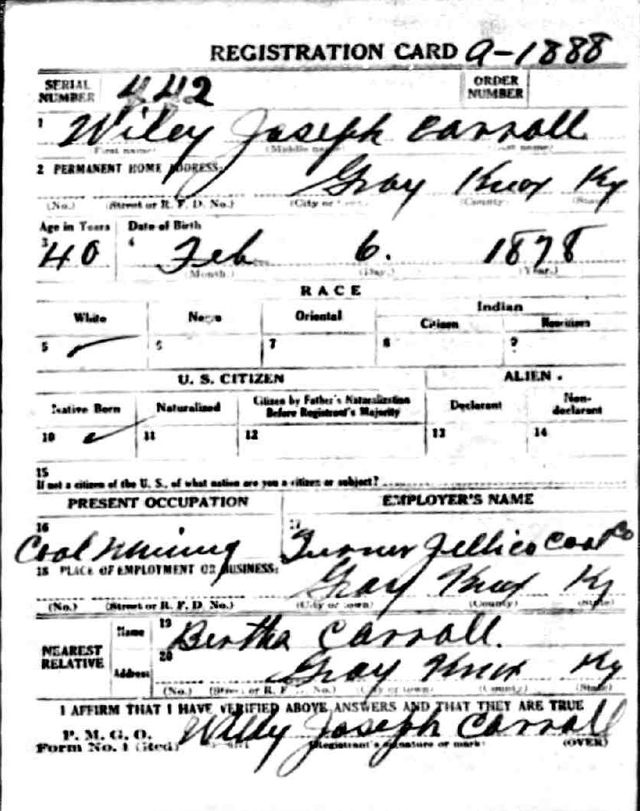 REGISTRATION CARD a-1888
SERIAL NUMBER 442 ORDER NUMBER
1 Wiley Joseph Carroll
(First name) (Middle name) (Last name)
2 PERMANENT HOME ADDRESS:
Gray Knox Ky
(No.) (Street or R. F. D. No.) (City or town) (County) (State)
Age in Years Date of Birth
3 40 4 Feb 6. 1878
(Month.) (Day.) (Year.)
RACE
White Negro Oriental Indian
Citizen Noncitizen
5 ✓ 6 7 8 9
U. S. CITIZEN ALIEN.
Native Born Naturalized Citizen by Father's Naturalization Before Registrant's Majority Declarant Non-declarant
10 ✓ 11 12 13 14
15
If not a citizen of the U. S., of what nation are you a citizen or subject?
PRESENT OCCUPATION EMPLOYER'S NAME
16 17
Coal Mining Turner Jellico Coal Co
18 PLACE OF EMPLOYMENT OR BUSINESS:
Gray Knox Ky
(No.) (Street or R. F. D. No.) (City or town) (County) (State)
NEAREST RELATIVE Name 19 Bertha Carroll.
Address 20 Gray Knox Ky
(No.) (Street or R. F. D. No.) (City or town) (County) (State)
I AFFIRM THAT I HAVE VERIFIED ABOVE ANSWERS AND THAT THEY ARE TRUE
P. M. G. O.
Form No. 1 (Red) Willy Joseph Carroll
(Registrant's signature or mark) (OVER)